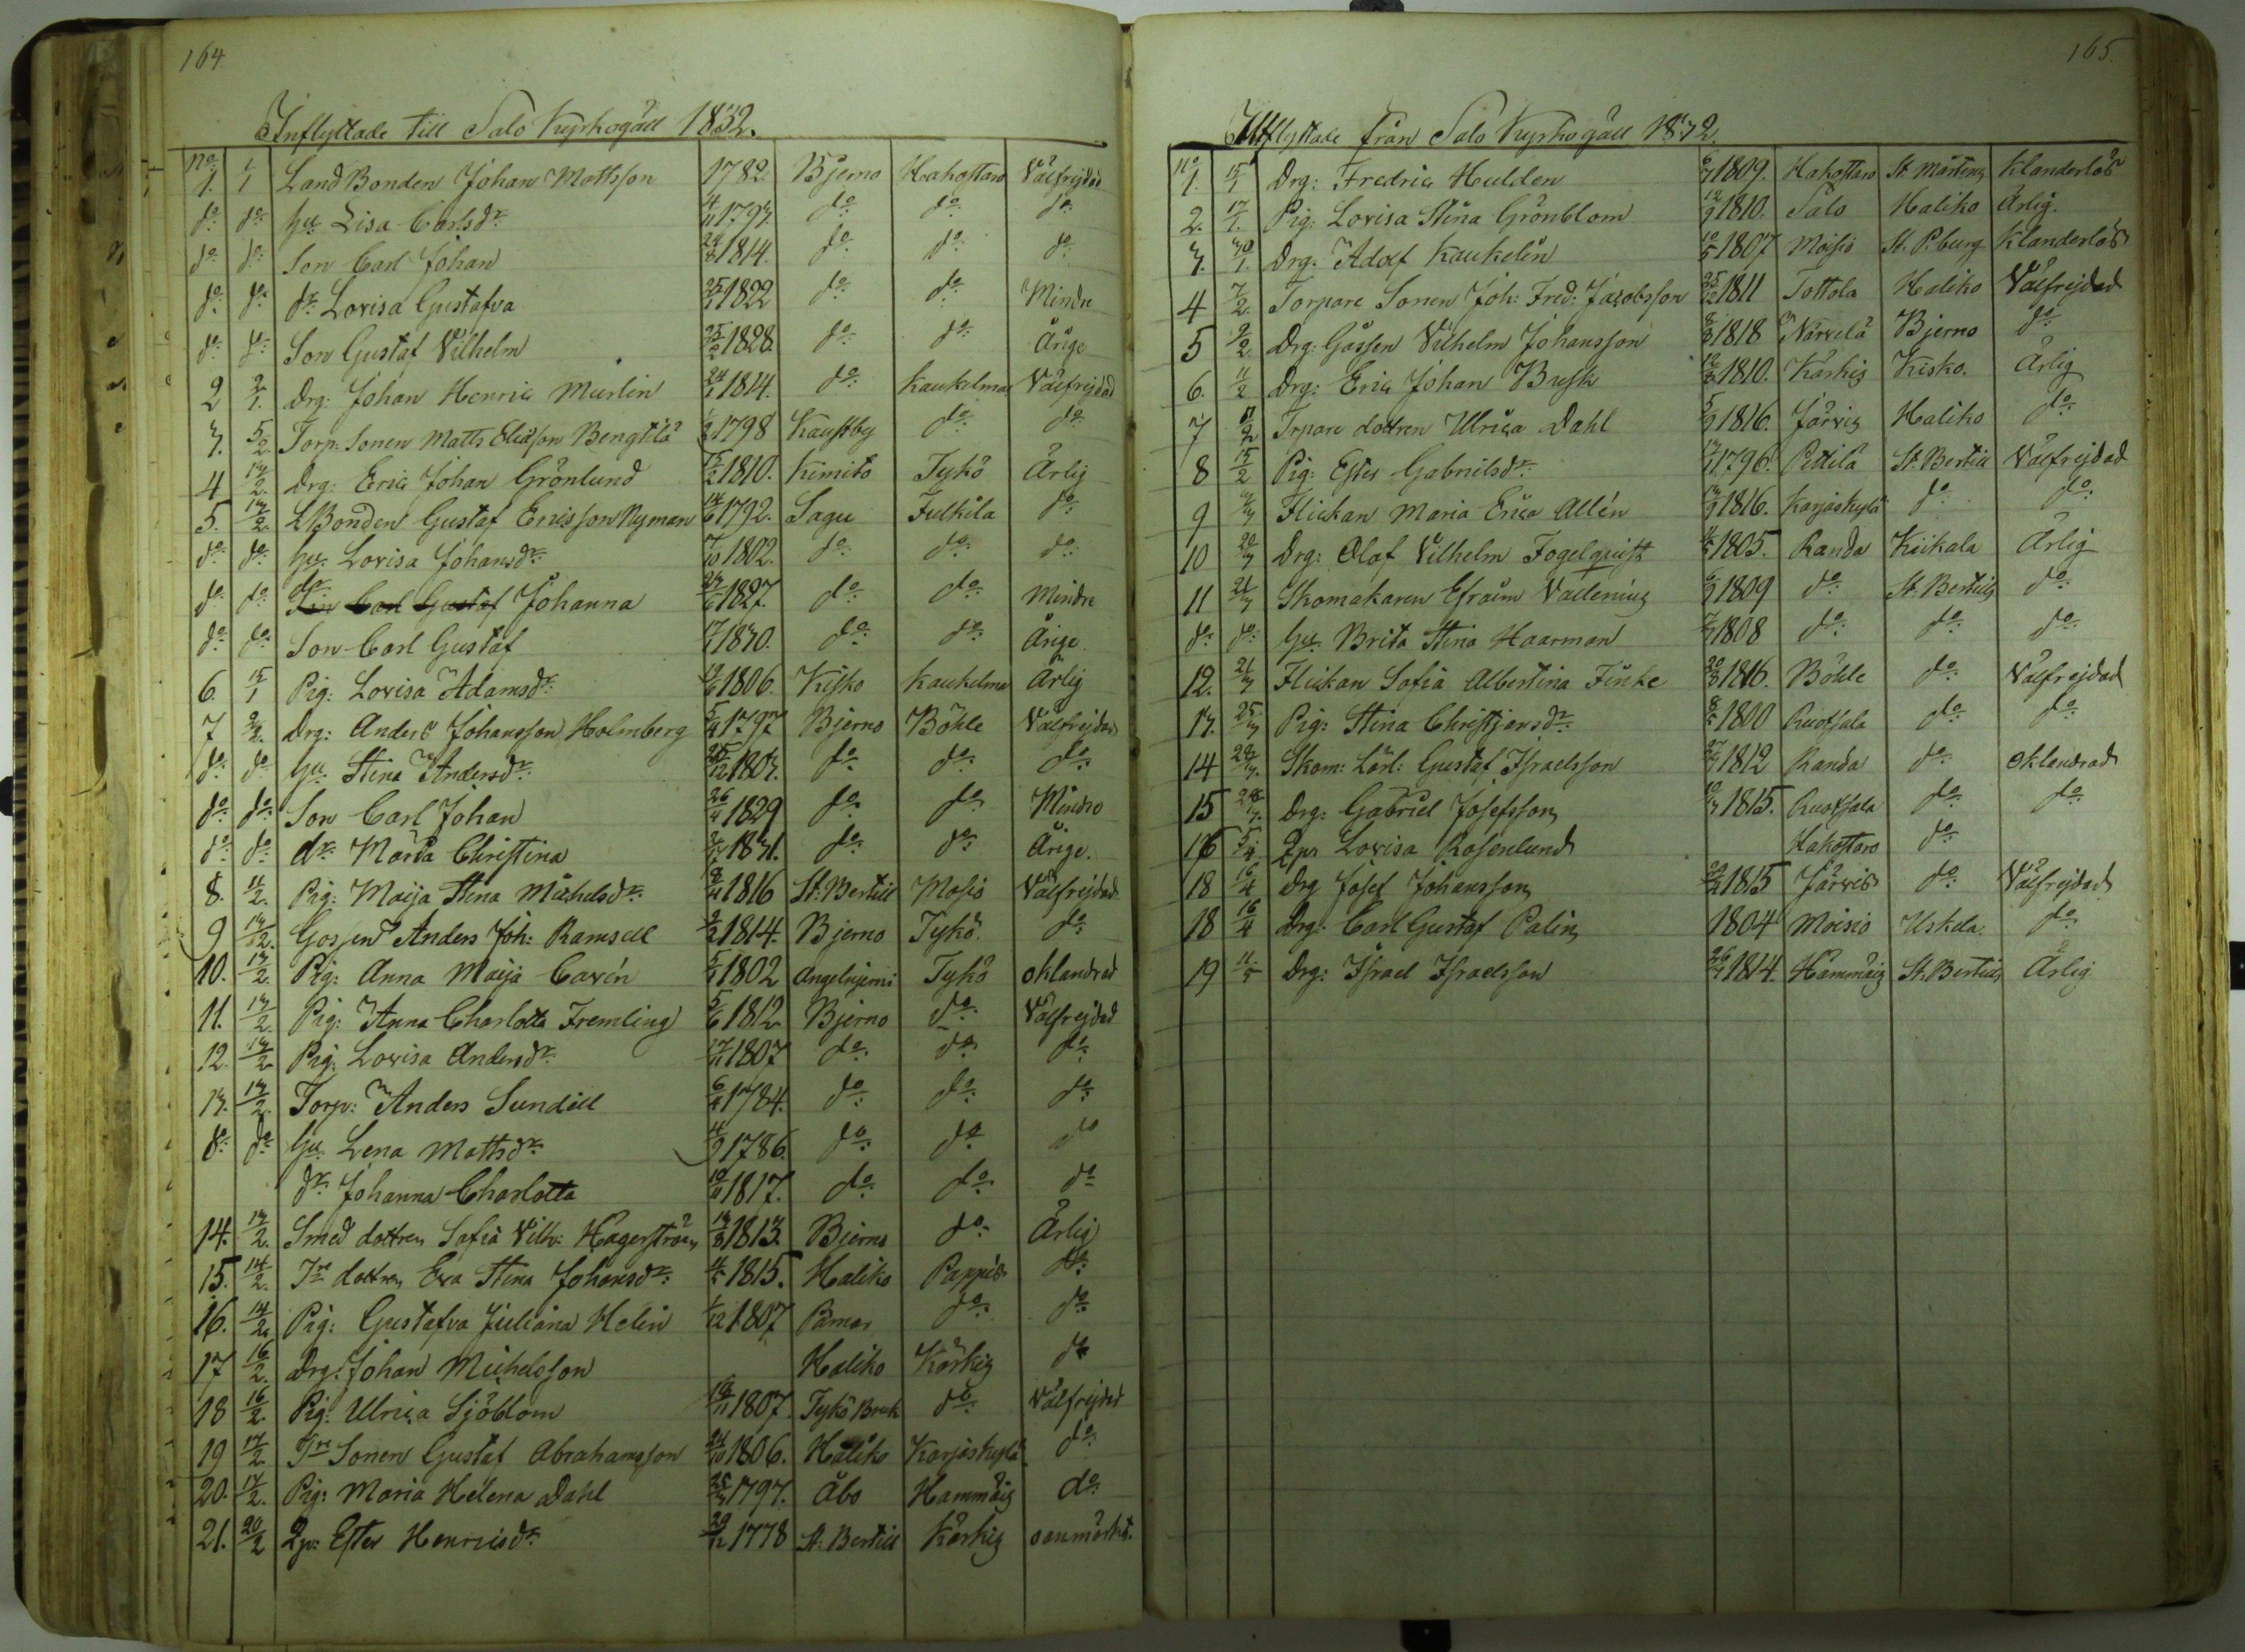 164.
Inflyttade till Salo Kyrkogäll 1832.
No 1. 1/1 Land Bonden Johan Mattsson 1782. Bjerno Hakostaro Välfrejdad
do do hu Lisa Carlsdr 4/11 1793. do do do
do do Son Carl Johan 24/8 1814. do do do
do do dr Lovisa Gustafva 1822 do do Mindre
do do Son Gustaf Vilhelm 1828. do do Årige
2 2/1. Drg: Johan Henric Murlin 24/1 1814. do Kaukelmas Välfrejdad
3. 5/2. Torp: Sonen Matts Eliasson Bengtilä 1798 Kaustby do do
4 13/2. Drg: Eric Johan Grönlund 15/2 1810. Kimito Tykö Ärlig
5. 13/2. L Bonden Gustaf Ericsson Nyman 14/6 1792. Sagu Fulkila do
do do hu Lovisa Johansdr 7/10 1802. do do do
do do dr Johanna 1827. do do Mindre
do do Son Carl Gustaf 1830. do do Årige
6. 15/1 Pig: Lovisa Adamsdr 19/6 1806. Kisko Kaukelma Ärlig
7 Drg: Anders Johansson Holmberg 1797 Bjerno Böhle Välfrejdad
do do hu Stina Andersdr 25/12 1803. do do do
do do Son Carl Johan 26/4 1829 do do Mindre
do do dr Maria Christina 1831. do do Årige.
8. 11/2. Pig: Maija Stina Michelsdr 8/11 1816 St. Bertill Moisio Välfrejdad
9 13/2. Gossen Anders Joh: Ramsell 1814. Bjerno Tykö do
10. 13/2. Pig: Anna Maija Cavén 1802 Angelnjemi Tykö oklandrad
11. 13/2. Pig: Anna Charlotta Fremling 5/6 1812. Bjerno do Välfrejdad
12. 13/2 Pig: Lovisa Andersdr 17/11 1807 do do do
13. 13/2. Torp: Anders Sundell 1784. do do do
do do hu Lena Mattsdr 1786. do do do
dr Johanna Charlotta 10/11 1817. do do do
14. 13/2. Smed dottren Sofia Vilh: Hagerström 13/8 1813. Bjerno do Ärlig
15. 14/2. Tre dottren Eva Stina Johansdr 1815. Haliko Pappis do
16. 14/2. Pig: Gustafva Juliana Helin 1/12 1807 Pemar do do
17 16/2. Drg: Johan Michelsson Haliko Kärkis do
18 16/2. Pig: Ulrica Sjöblom 1807. Tykö Bruk do Välfrejdad
19 17/2. Tre Sonen Gustaf Abrahamsson 24/10 1806. Haliko Karjaskylä do
20. 17/2. Pig: Maria Helena Dahl 1797. Åbo Hammäis do
21. 20/2 Qp: Ester Henricsdr 29/12 1778 St. Bertill Kärkis oanmärkt.
165.
Utflyttade från Salo Kyrkogäll 1832.
No 1. 15/1 Drg: Fredric Hulden 1809. Hakostaro St. Mårtens Klanderlös
2. 17/1. Pig: Lovisa Stina Grönblom 12/9 1810. Salo Haliko Ärlig.
3. 30/1. Drg: Adolf Kaukelin 10/5 1807 Moisio St. P.burg Klanderlös
4 7/2. Torpare Sonen Joh: Fred: Jacobsson 25/12 1811 Tottola Haliko Välfrejdad
5 9/2 Drg: Gossen Vilhelm Johansson 1818 Närvelä Bjerno do
6. 11/2 Drg: Eric Johan Busk 1810. Kärkis Kisko. Ärlig
7 Trpare dottren Ulrica Dahl 1816. Järvis Haliko do
8 15/2 Pig: Ester Gabrielsdr 1796. Pettilä St. Bertill Välfrejdad
9 Flickan Maria Erica Allén 1816. Karjaskylä do do
10 20/3 Drg: Olof Vilhelm Fogelquist 1805. Randa Kiikala Ärlig
11 21/3 Skomakaren Efraim Vallenius 1809 do St. Bertills do
do do hu Brita Stina Haarman 1808 do do do
12. 21/3 Flickan Sofia Albertina Finke 1816. Böhle do Välfrejdad
13. 25/3 Pig: Stina Christjansdr 1800 Ruotsala do do
14 28/3. Skom: Lärl: Gustaf Israelsson 1812 Randa do oklandrad
15 28/3. Drg: Gabriel Josefsson 1815. Ruotsala do do
16 5/4 Qps Lovisa Rosenlund Hakostaro do
18 16/4 Drg Josef Johansson 1815 Järvis do Välfrejdad
18 16/4 Drg: Carl Gustaf Palin 1804 Moisio Uskela do
19 11/5 Drg: Israel Israelsson 1814. Hammäis St. Bertills Ärlig